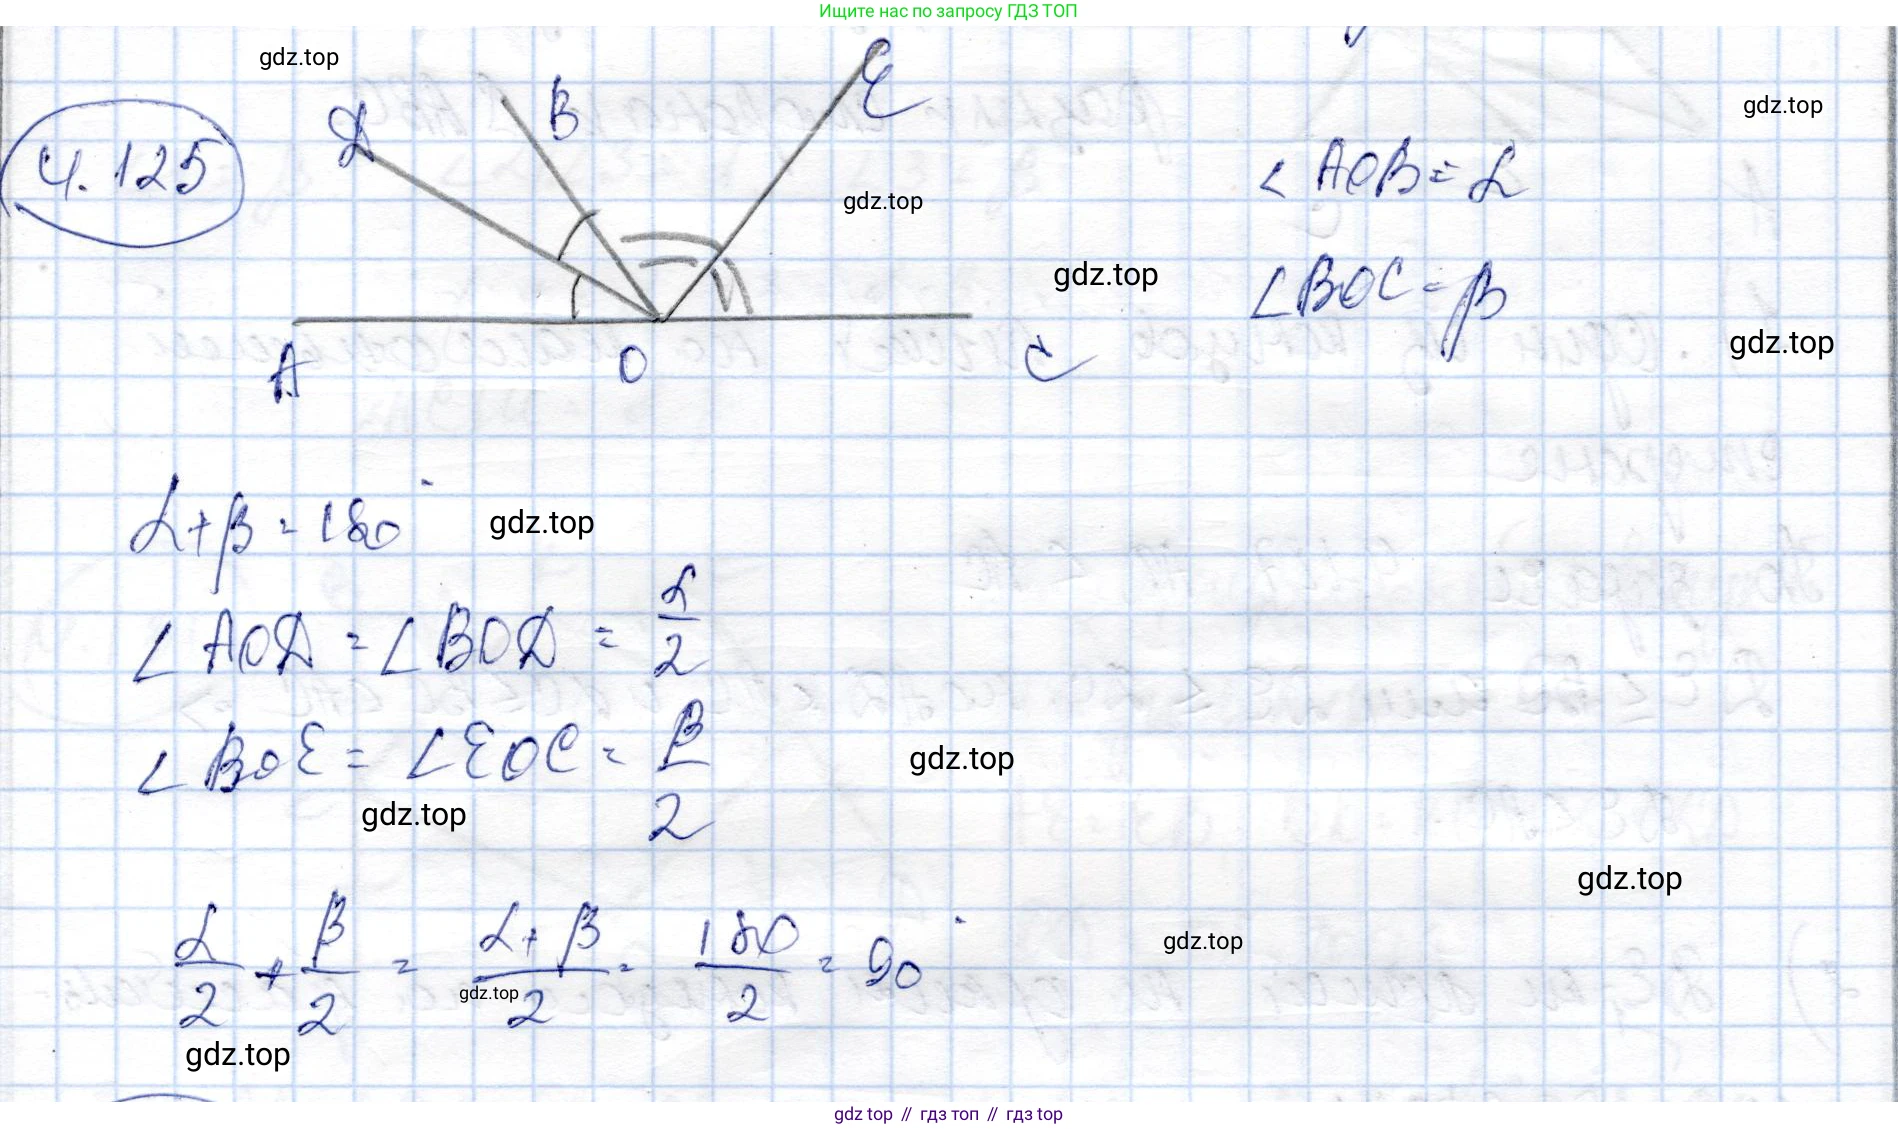 Ищите нас по запросу ГДЗ ТОП
gdz.top
4.125
D
B
E
gdz.top
∠AOB = α
gdz.top
gdz.top
∠BOC = β
gdz.top
A
O
C
α + β = 180°
gdz.top
∠AOD = ∠BOD = α/2
∠BOE = ∠EOC = β/2
gdz.top
gdz.top
gdz.top
α/2 + β/2 = α+β/2 = 180/2 = 90°
gdz.top
gdz.top
gdz.top
gdz top // гдз топ // гдз top